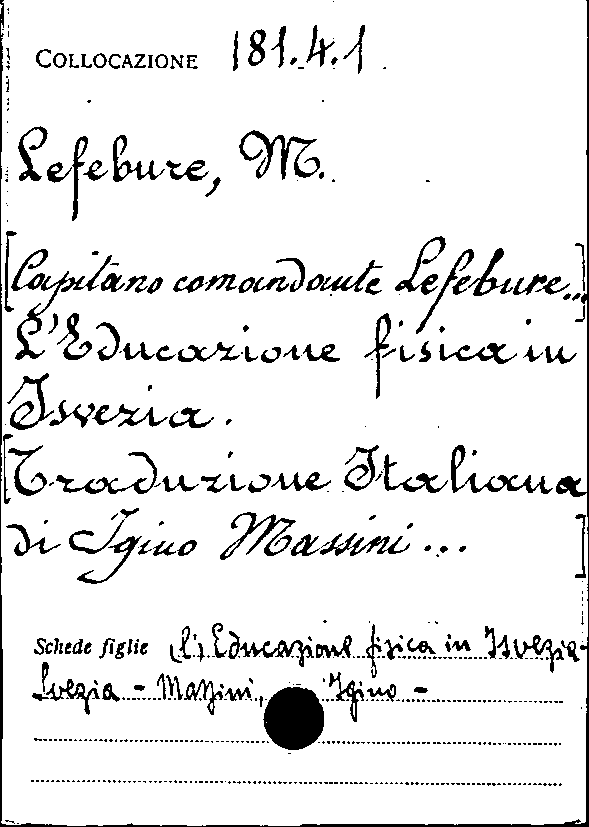 COLLOCAZIONE 181.4.1
Lefebure, M.
[Capitano comandante Lefebure...]
L'Educazione fisica in
Isvezia.
[Traduzione Italiana
di Igino Massini...]
Schede figlie (L') Educazione fisica in Isvezia-
Svezia - Mazzini, Igino -